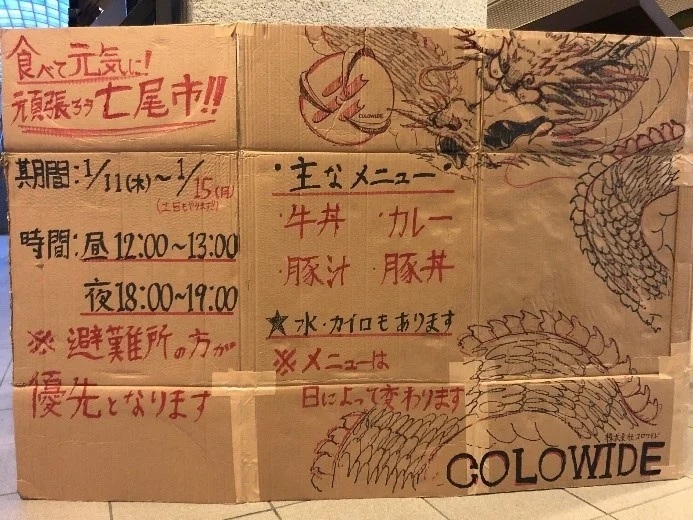 食べて元気に!
頑張ろう七尾市!!
期間:1/11(木)~1/15(月)
(土日もやります!)
時間:昼12:00~13:00
夜18:00~19:00
※避難所の方が
優先となります
COLOWIDE
・主なメニュー
・牛丼 ・カレー
・豚汁 ・豚丼
★水・カイロもあります
※メニューは
日によって変わります
株式会社コロワイド
COLOWIDE